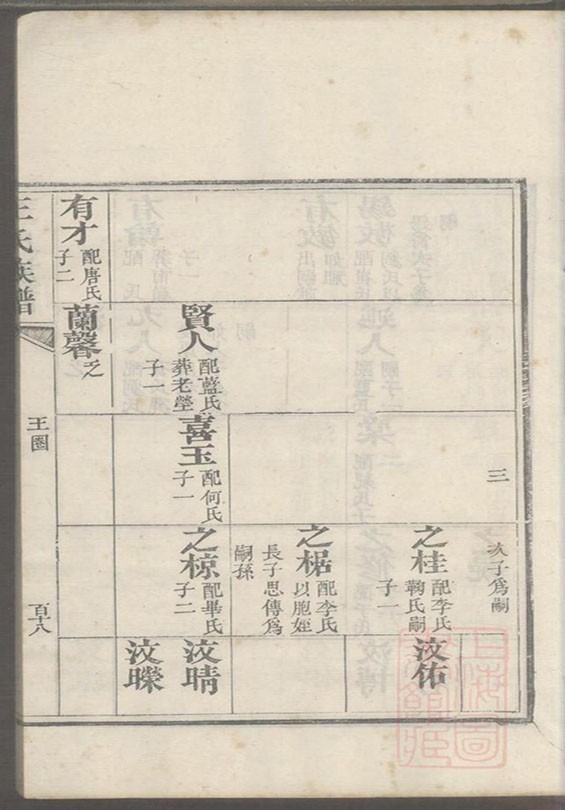 次子爲嗣
三
之桂 配李氏
鞠氏嗣
子一
汶佑
之椐 配李氏
以胞姪
長子思傳爲
嗣孫
賢人 配藍氏
葬老塋
子一
喜玉 配何氏
子一
之椋 配畢氏
子二
汶晴
汶曗
有才 配唐氏
子二
蘭馨
王氏族譜
王圈
百十八